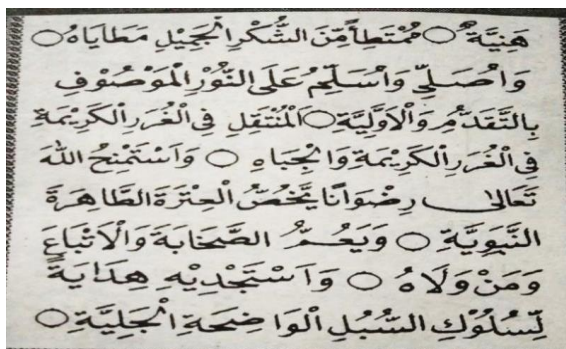 هَنِيَّةً ○ مُمْتَطِأً مِّنَ الشُّكْرِ الْجَمِيْلِ مَطَايَاهُ ○
وَاُصَلِّيْ وَاُسَلِّمُ عَلَى النُّوْرِ الْمَوْصُوْفِ
بِالتَّقَدُّمِ وَالْاَوَّلِيَّةِ ○ اَلْمُنْتَقِلِ فِي الْغُرَرِ الْكَرِيْمَةِ
فِي الْغُرَرِ الْكَرِيْمَةِ وَالْجِبَاهِ ○ وَاَسْتَمْنِحُ اللهَ
تَعَالٰى رِضْوَانًا يَّخُصُّ الْعِتْرَةَ الطَّاهِرَةَ
النَّبَوِيَّةَ ○ وَيَعُمُّ الصَّحَابَةَ وَالْاَتْبَاعَ
وَمَنْ وَلَاهُ ○ وَاَسْتَجْدِيْهِ هِدَايَةً
لِّسُلُوْكِ السُّبُلِ الْوَاضِحَةِ الْجَلِيَّةِ ○